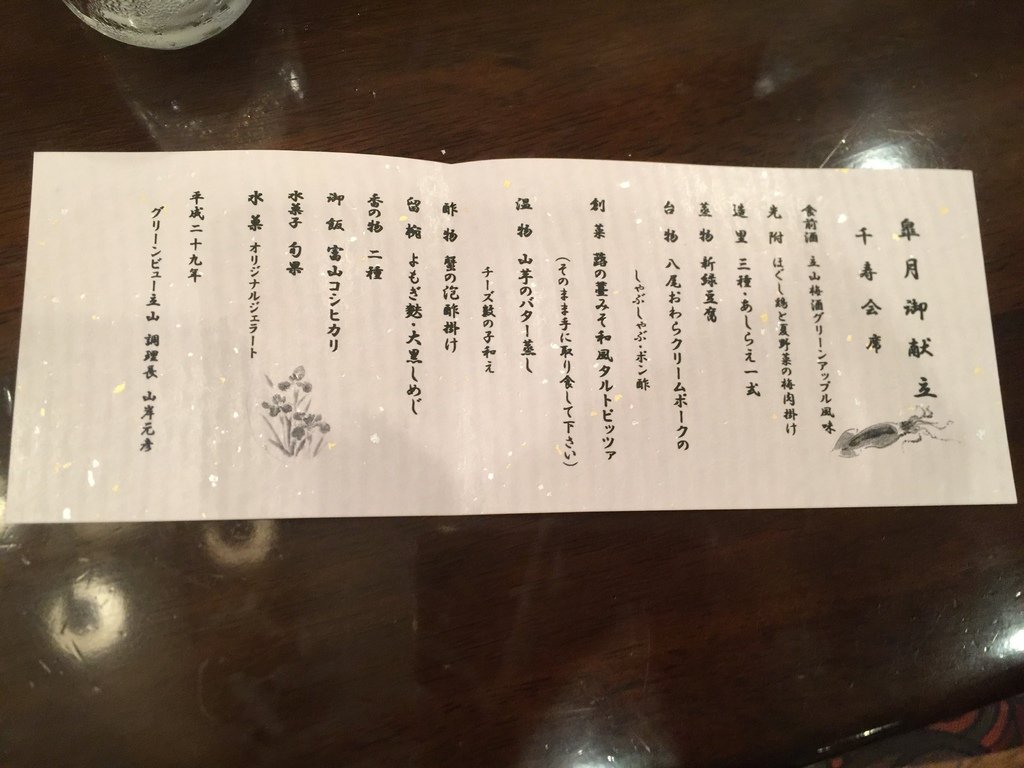 皐月御献立
千寿会席
食前酒 立山梅酒グリーンアップル風味
先附 ほぐし鶏と夏野菜の梅肉掛け
造里 三種・あしらえ一式
蒸物 新緑豆腐
台物 八尾おわらクリームポークの
しゃぶしゃぶ・ポン酢
創菜 蕗の薹みそ和風タルトピッツァ
(そのまま手に取り食して下さい)
温物 山芋のバター蒸し
チーズ数の子和え
酢物 蟹の泡酢掛け
留椀 よもぎ麩・大黒しめじ
香の物 二種
御飯 富山コシヒカリ
水菓子 旬果
水菓 オリジナルジェラート
平成二十九年
グリーンビュー立山 調理長 山岸元彦